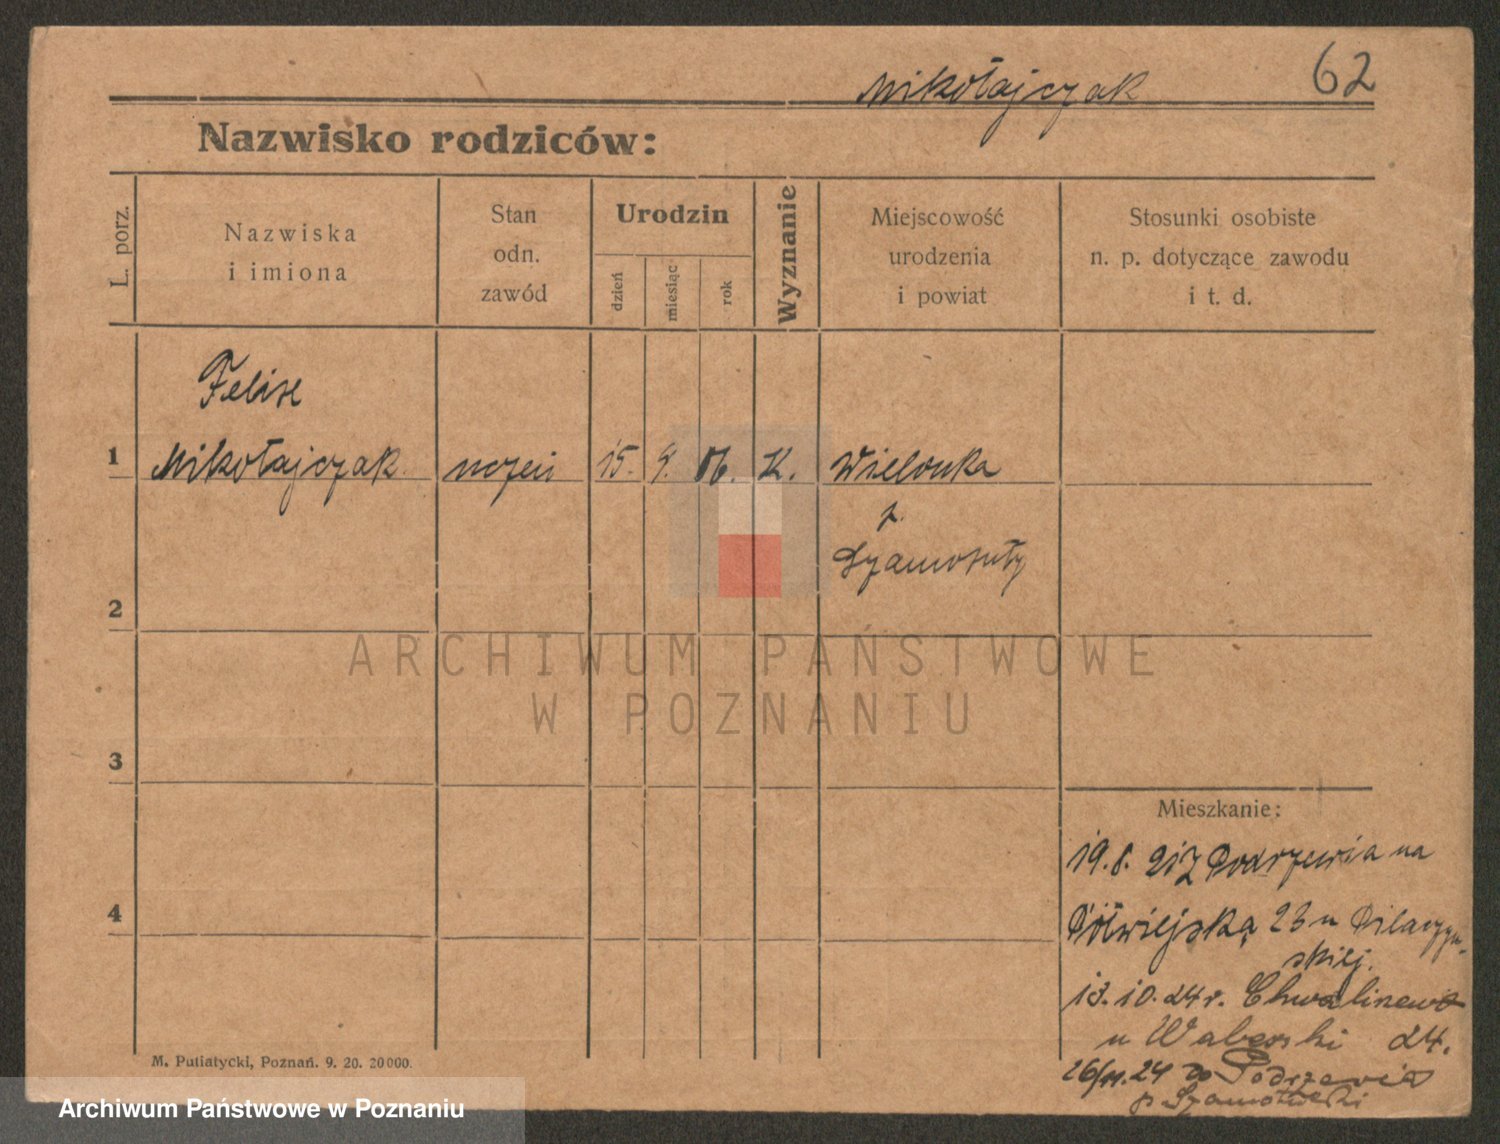 62
Mikołajczak
Nazwisko rodziców:
L. porz.
Nazwiska
i imiona
Stan
odn.
zawód
Urodzin
dzień
miesiąc
rok
Wyznanie
Miejscowość
urodzenia
i powiat
Stosunki osobiste
n. p. dotyczące zawodu
i t. d.
Felix
1 Mikołajczak uczeń 15. 4. 06. K. Wielonka
p.
Szamotuły
2
3
4
Mieszkanie:
19.8. 21 z Podrzewia na
Półwiejską 23 u Pilaczyń-
skiej.
13.10.24r.
u Waberski 24.
26/11.24 do Podrzewia
p Szamotulski
M. Putiatycki, Poznań. 9. 20. 20000.
ARCHIWUM PAŃSTWOWE
W POZNANIU
Archiwum Państwowe w Poznaniu